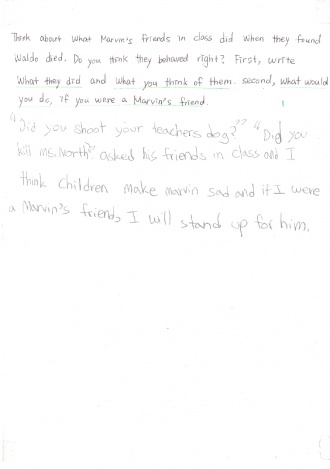 Think about what Marvin's friends in class did when they found
Waldo died. Do you think they behaved right? First, write
what they did and what you think of them. second, what would
you do, if you were a Marvin's friend.
"Did you shoot your teachers dog?" "Did you
kill ms. North?" asked his friends in class and I
think children make marvin sad and if I were
a Marvin's friend, I will stand up for him.